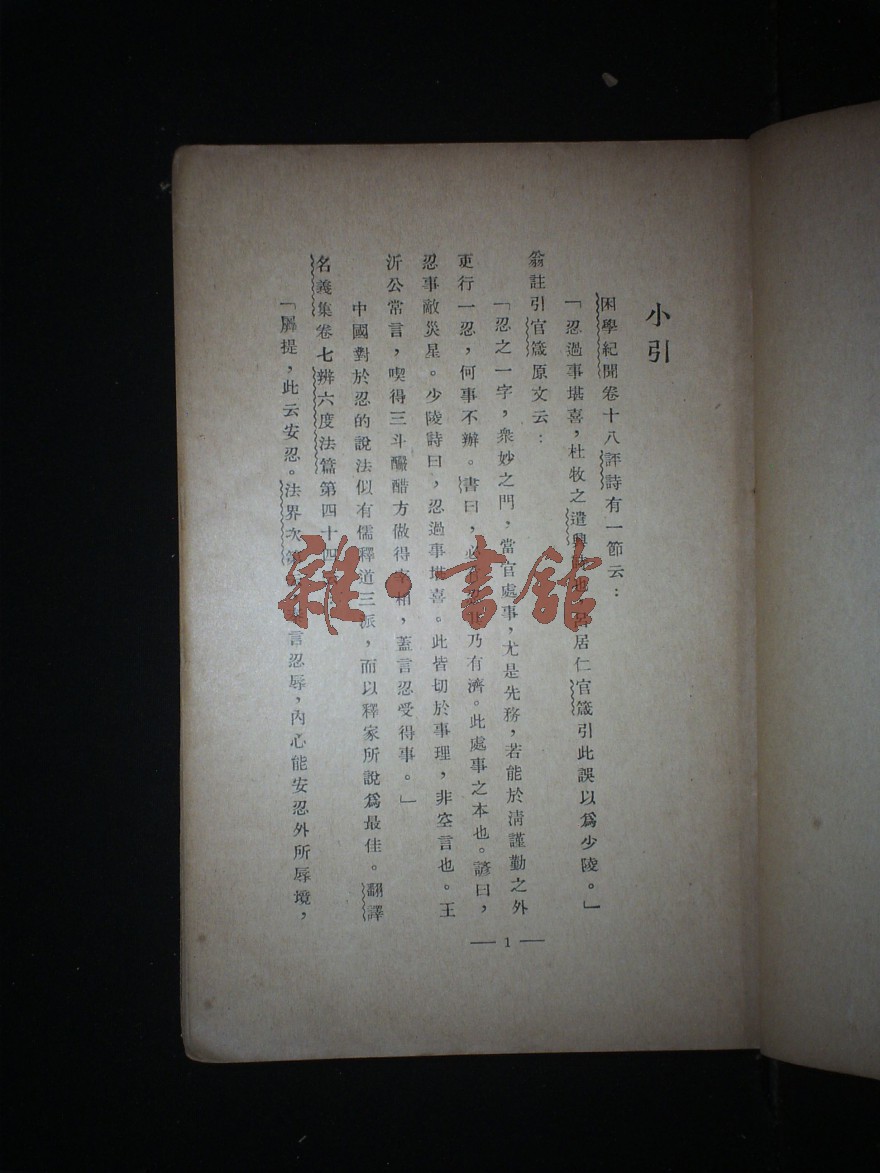 小引
困學紀聞卷十八評詩有一節云：
「忍過事堪喜，杜牧之遣興詩也，呂居仁官箴引此誤以爲少陵。」
翁註引官箴原文云：
「忍之一字，衆妙之門，當官處事，尤是先務，若能於清謹勤之外
更行一忍，何事不辦。書曰，必有忍其乃有濟。此處事之本也。諺曰，
忍事敵災星。少陵詩曰，忍過事堪喜。此皆切於事理，非空言也。王
沂公常言，喫得三斗釅醋方做得宰相，蓋言忍受得事。」
中國對於忍的說法似有儒釋道三派，而以釋家所說爲最佳。翻譯
名義集卷七辨六度法篇第四十四
「羼提，此云安忍。法界次第 言忍辱，內心能安忍外所辱境，
— 1 —
雜·書館